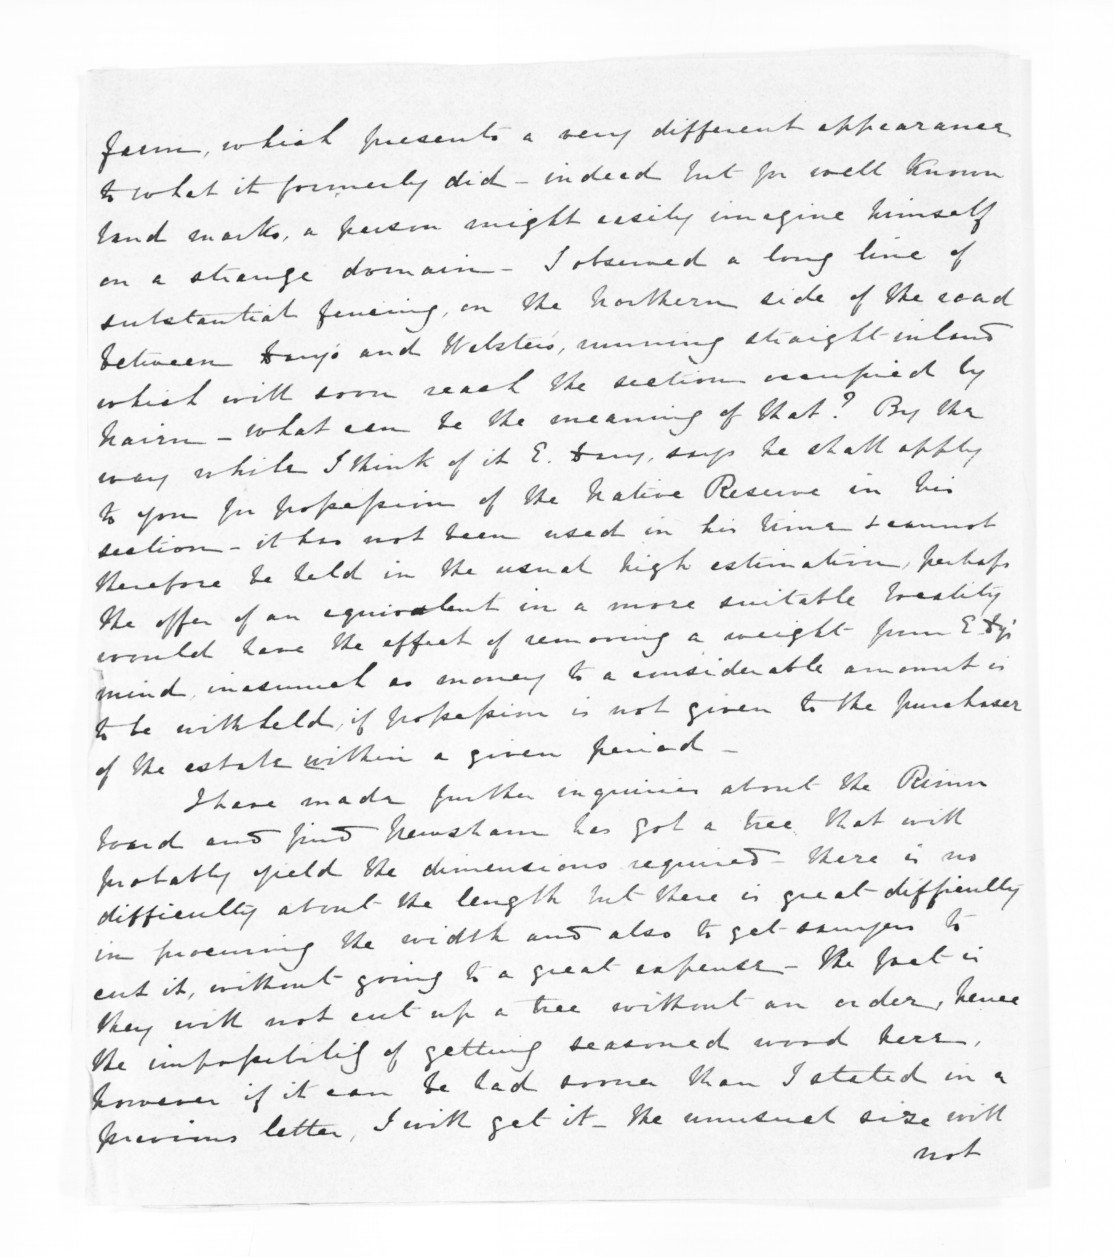 farm, which presents a very different appearance
to what it formerly did - indeed but for well known
land marks, a person might easily imagine himself
on a strange domain - I observed a long line of
substantial fencing, on the Northern side of the road
between and Webster's, running straight inland
which will soon reach the section occupied by
Nairn - what can be the meaning of that? By the
way while I think of it E. says he shall apply
to you for possession of the Native Reserve in his
section - it has not been used in his time & cannot
therefore be held in the usual high estimation, perhaps
the offer of an equivalent in a more suitable locality
would have the effect of removing a weight from E
mind, inasmuch as money to a considerable amount is
to be withheld, if possession is not given to the purchaser
of the estate within a given period -
I have made further inquiries about the Rimu
board and find Newsham has got a tree that will
probably yield the dimensions required - there is no
difficulty about the length but there is great difficulty
in procuring the width and also to get sawyers to
cut it, without going to a great expense - The fact is
they will not cut up a tree without an order, hence
the impossibility of getting seasoned wood here,
however if it can be had sooner than I stated in a
previous letter, I will get it - the unusual size will
not